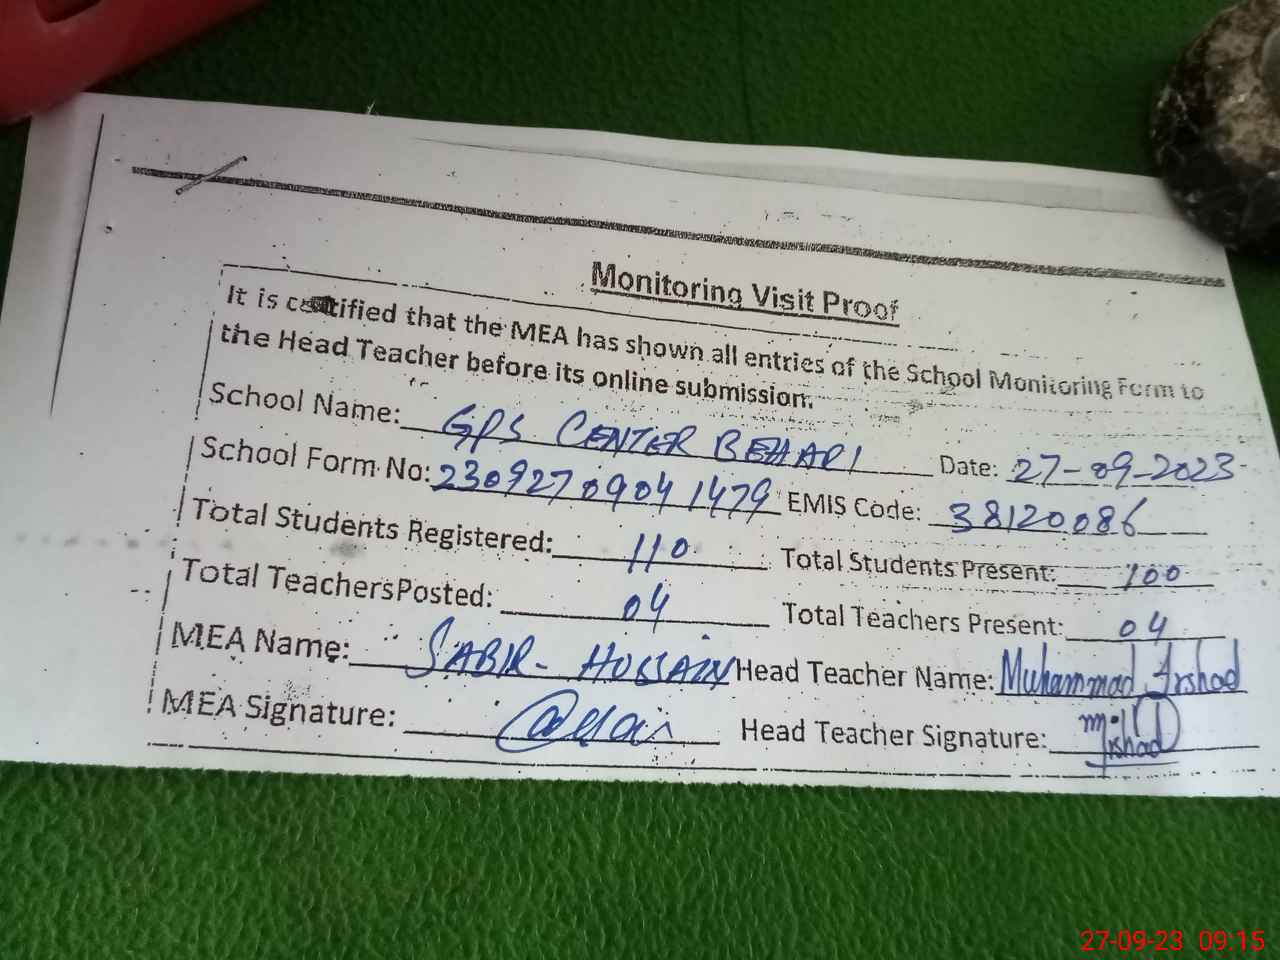 Monitoring Visit Proof
It is certified that the MEA has shown all entries of the School Monitoring Form to
the Head Teacher before its online submission.
School Name: GPS CENTER BEHARI Date: 27-09-2023
School Form No: 2309270904 1479 EMIS Code: 38120086
Total Students Registered: 110 Total Students Present: 100
Total Teachers Posted: 04 Total Teachers Present: 04
MEA Name: SABIR- HUSSAIN Head Teacher Name: Muhammad Arshad
MEA Signature: Head Teacher Signature: M Arshad
27-09-23 09:15